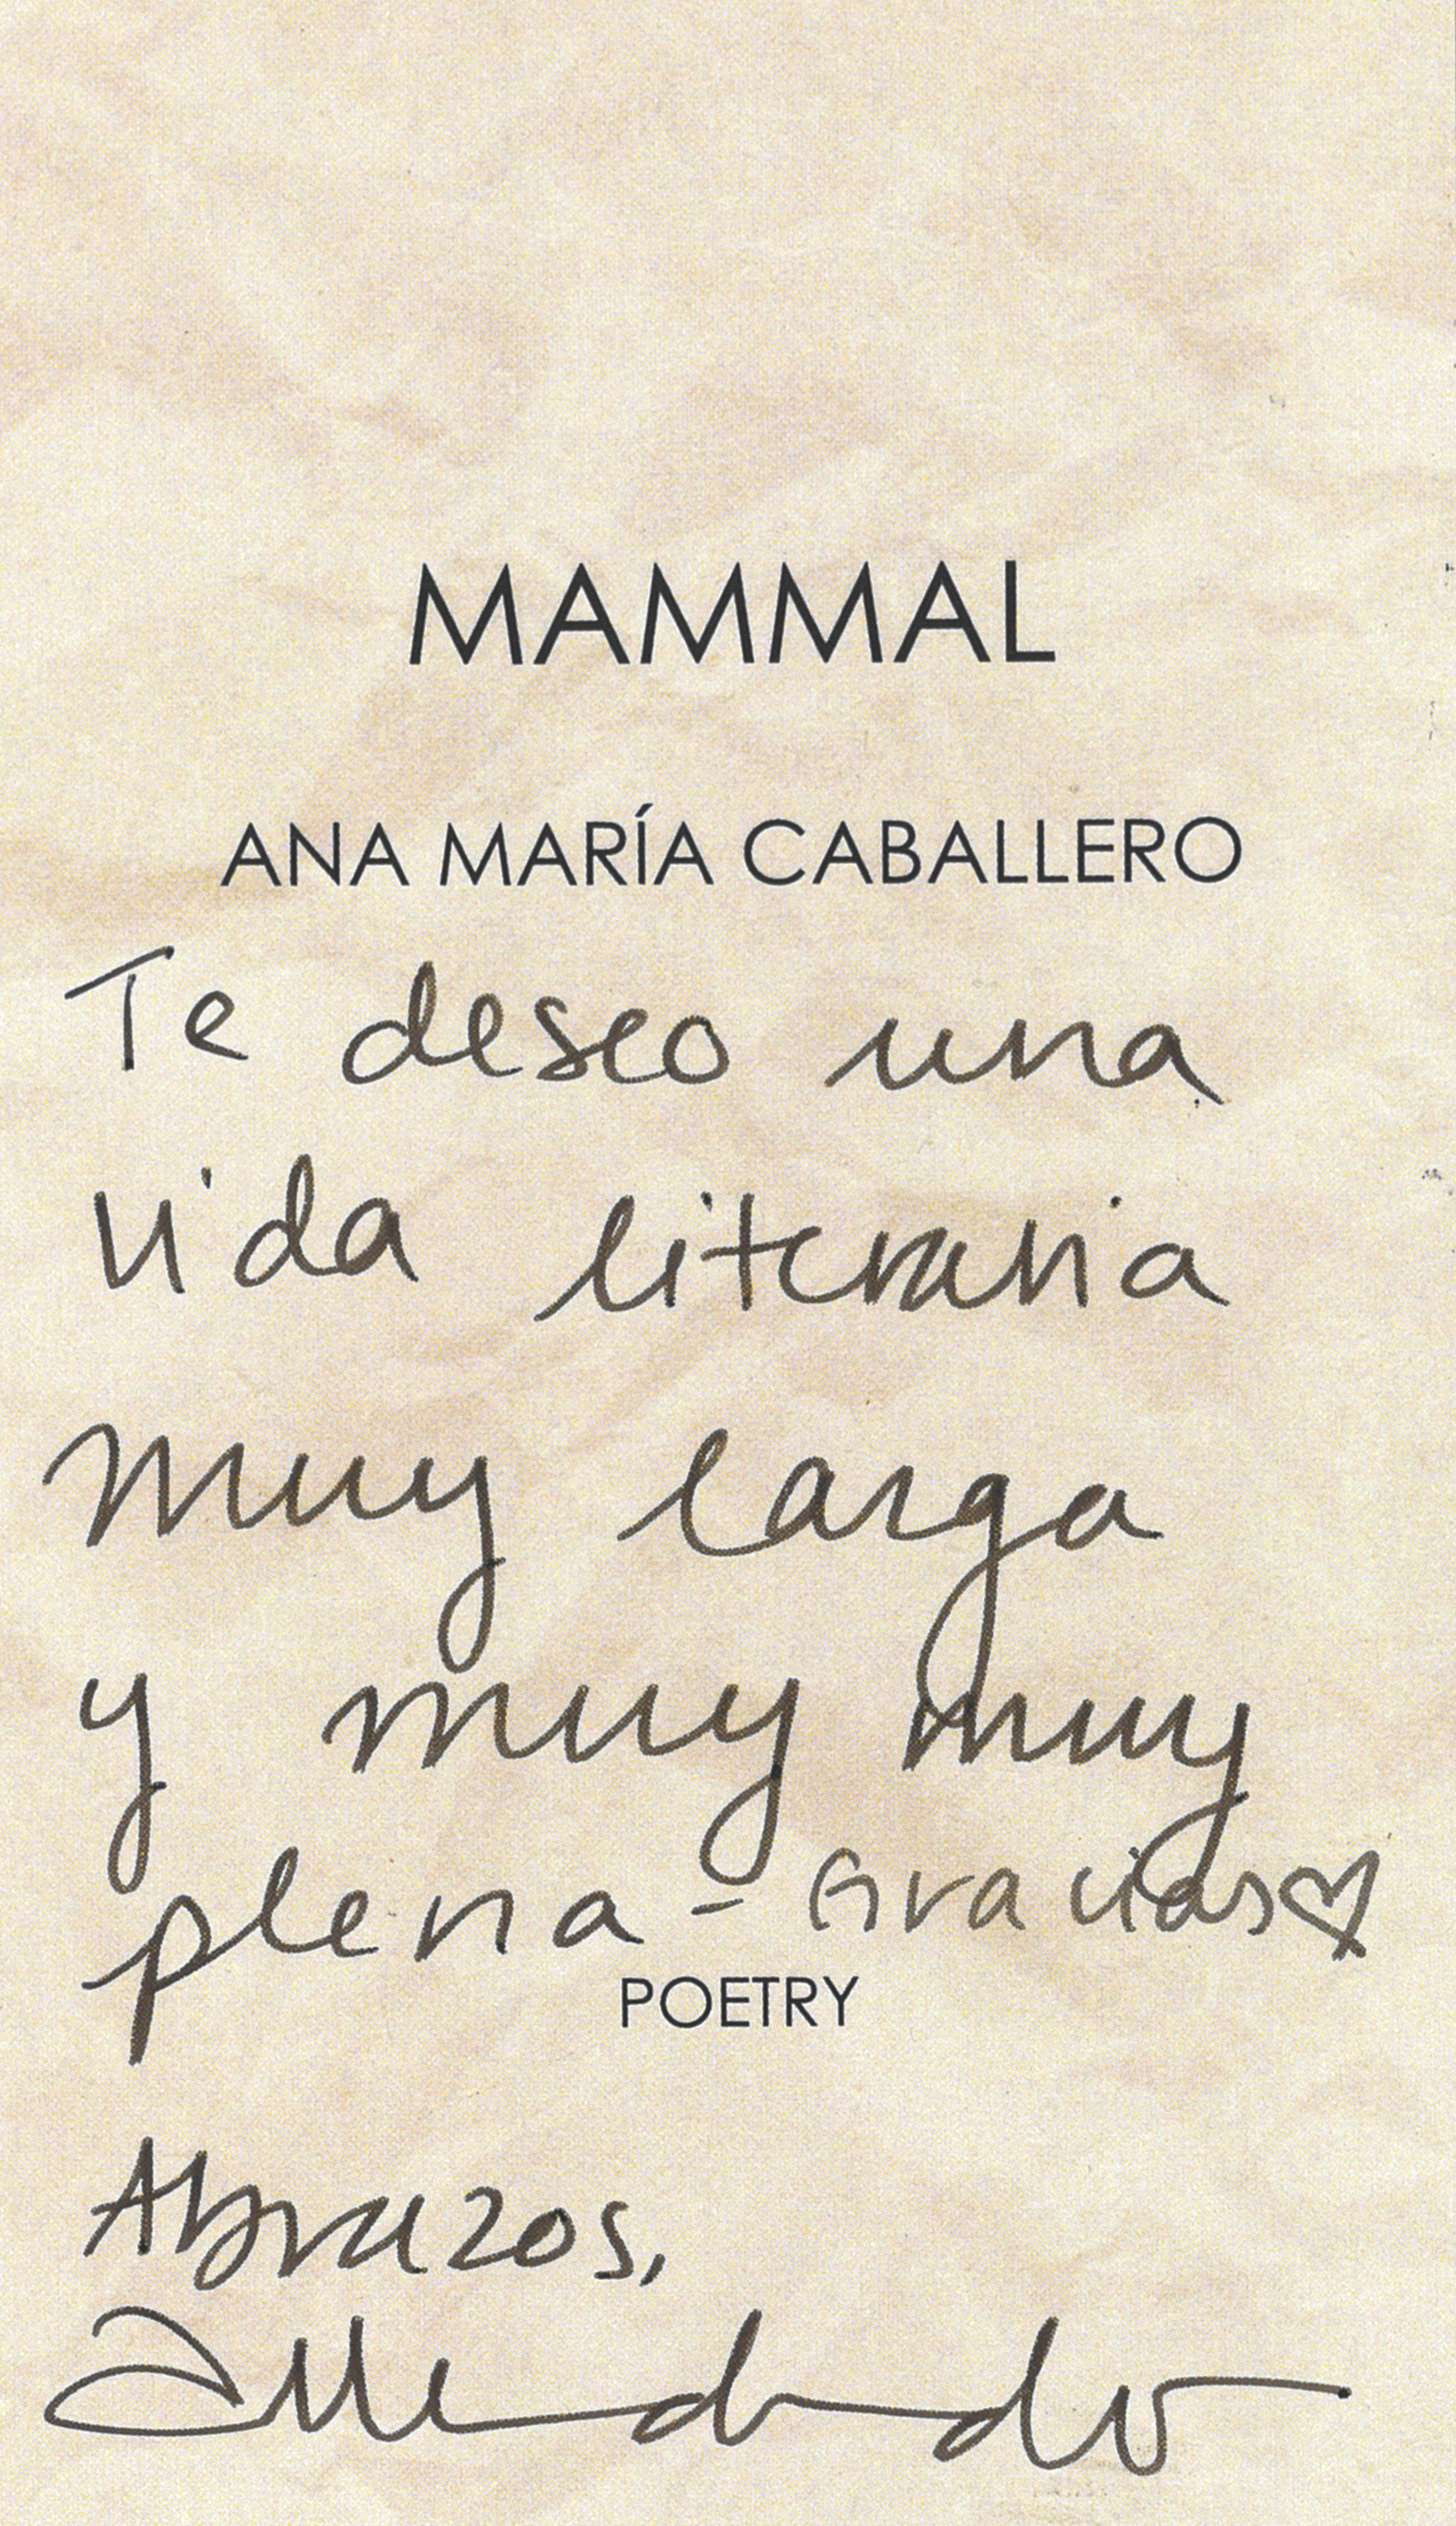 MAMMAL
ANA MARÍA CABALLERO
Te deseo una
vida literaria
muy larga
y muy muy
plena - Gracias♡
POETRY
Abrazos,